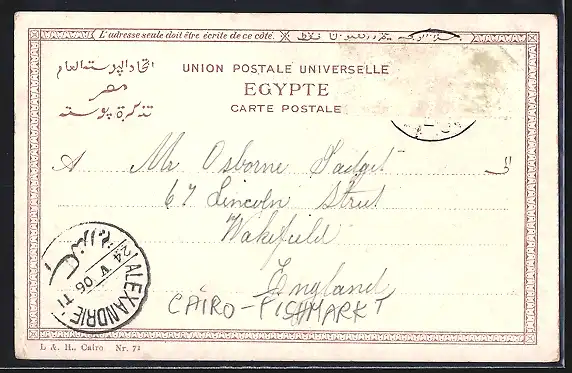 L'adresse seule doit être écrite de ce côté.
اتحاد البوسته العام
مصر
تذكرة بوسته
UNION POSTALE UNIVERSELLE
EGYPTE
CARTE POSTALE
A Mr Osborne الى
67 Lincoln Street
Wakefield
England
CAIRO - FISHMARKT
ALEXANDRIE
24 V 06 TI
L & H., Cairo Nr. 71